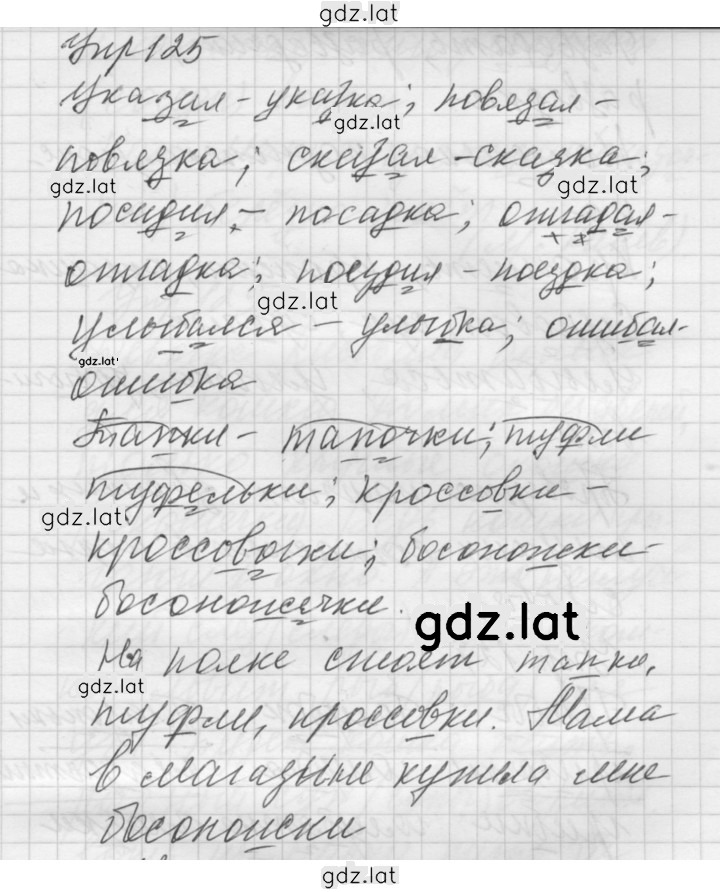 gdz.lat
Упр 125
Указал - указка; повязал -
gdz.lat
повязка; сказал - сказка;
gdz.lat gdz.lat
посадил - посадка; отгадал -
отгадка; поездил - поездка;
gdz.lat
улыбался - улыбка; ошибал-
gdz.lat
ошибка
Тапки - тапочки; туфли
туфельки; кроссовки -
gdz.lat
кроссовочки; босоножки -
босоножечки.
gdz.lat
На полке стоят тапки,
gdz.lat
туфли, кроссовки. Мама
в магазине купила мне
босоножки
gdz.lat